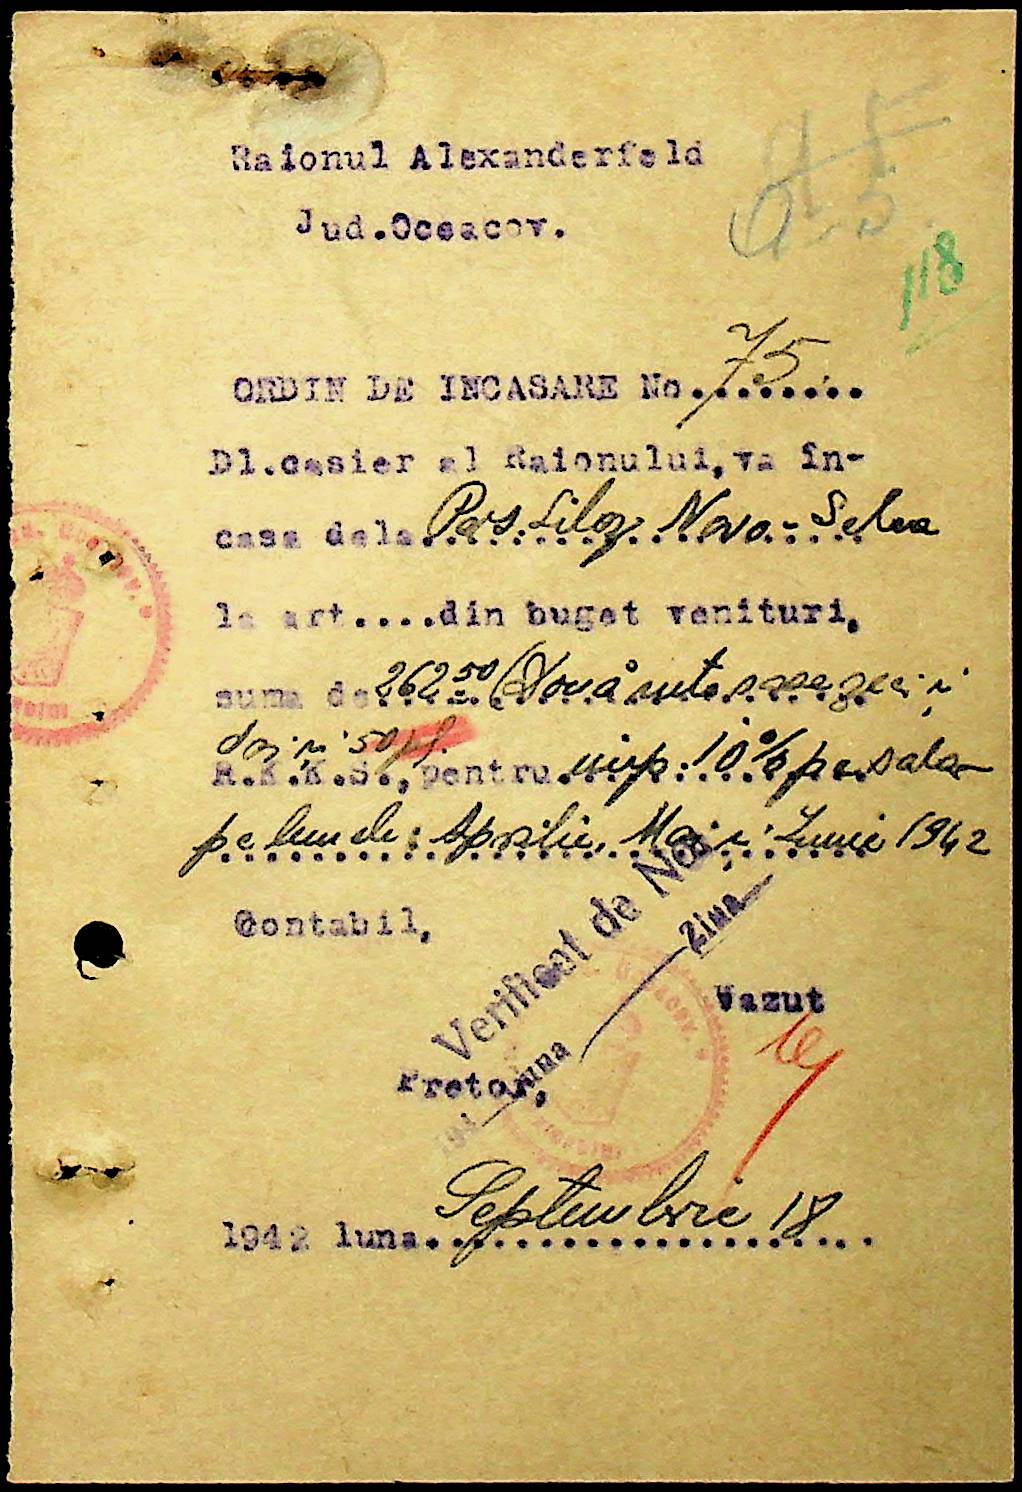 Raionul Alexanderfeld
Jud.Oceacov.
118
ORDIN DE INCASARE No. 75
Dl.casier al Raionului, va în-
casa dela Pers. Siloz Novo-Selca
la art....din buget venituri,
suma de 262 50 (Două sute șasezeci și
doi și 50 pf.
R.K.K.S., pentru imp. 10% pe sala-
pe lunele: Aprilie, Mai și Iunie 1942
Contabil,
Verificat de Noi
Ziua
Luna
194
Vazut
Pretor,
1942 luna Septembrie 18